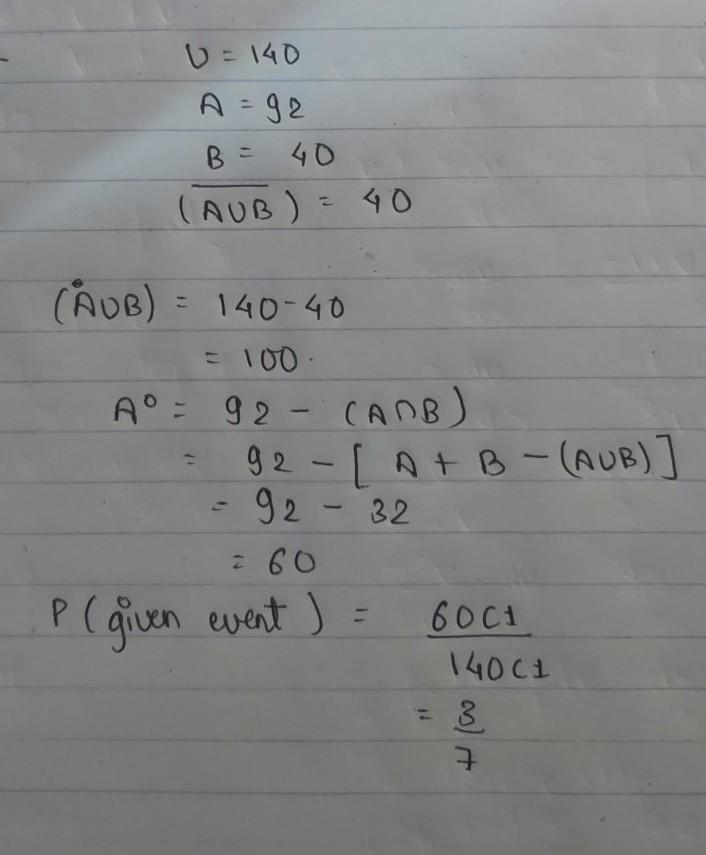 U = 140
A = 92
B = 40
(A∪B)‾ = 40
(A∪B) = 140-40
= 100.
A° = 92 - (A∩B)
= 92 - [ A + B - (A∪B) ]
= 92 - 32
= 60
P (given event) = 60C1
140C1
= 3
7